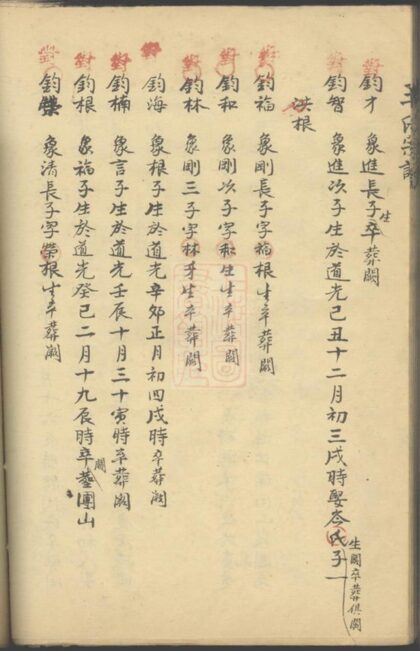 鈞才 象進長子生卒葬闕
鈞智 象進次子生於道光己丑十二月初三戌時娶岺氏子一
生闕卒葬俱闕
洪根
鈞福 象剛長子字福根生卒葬闕
鈞和 象剛次子字和生生卒葬闕
鈞林 象剛三子字林生生卒葬闕
鈞海 象根子生於道光辛卯正月初四戌時卒葬闕
鈞楠 象言子生於道光壬辰十月三十寅時卒葬闕
鈞根 象福子生於道光癸巳二月十九辰時卒闕葬團山
鈞 象清長子字榮根生卒葬闕